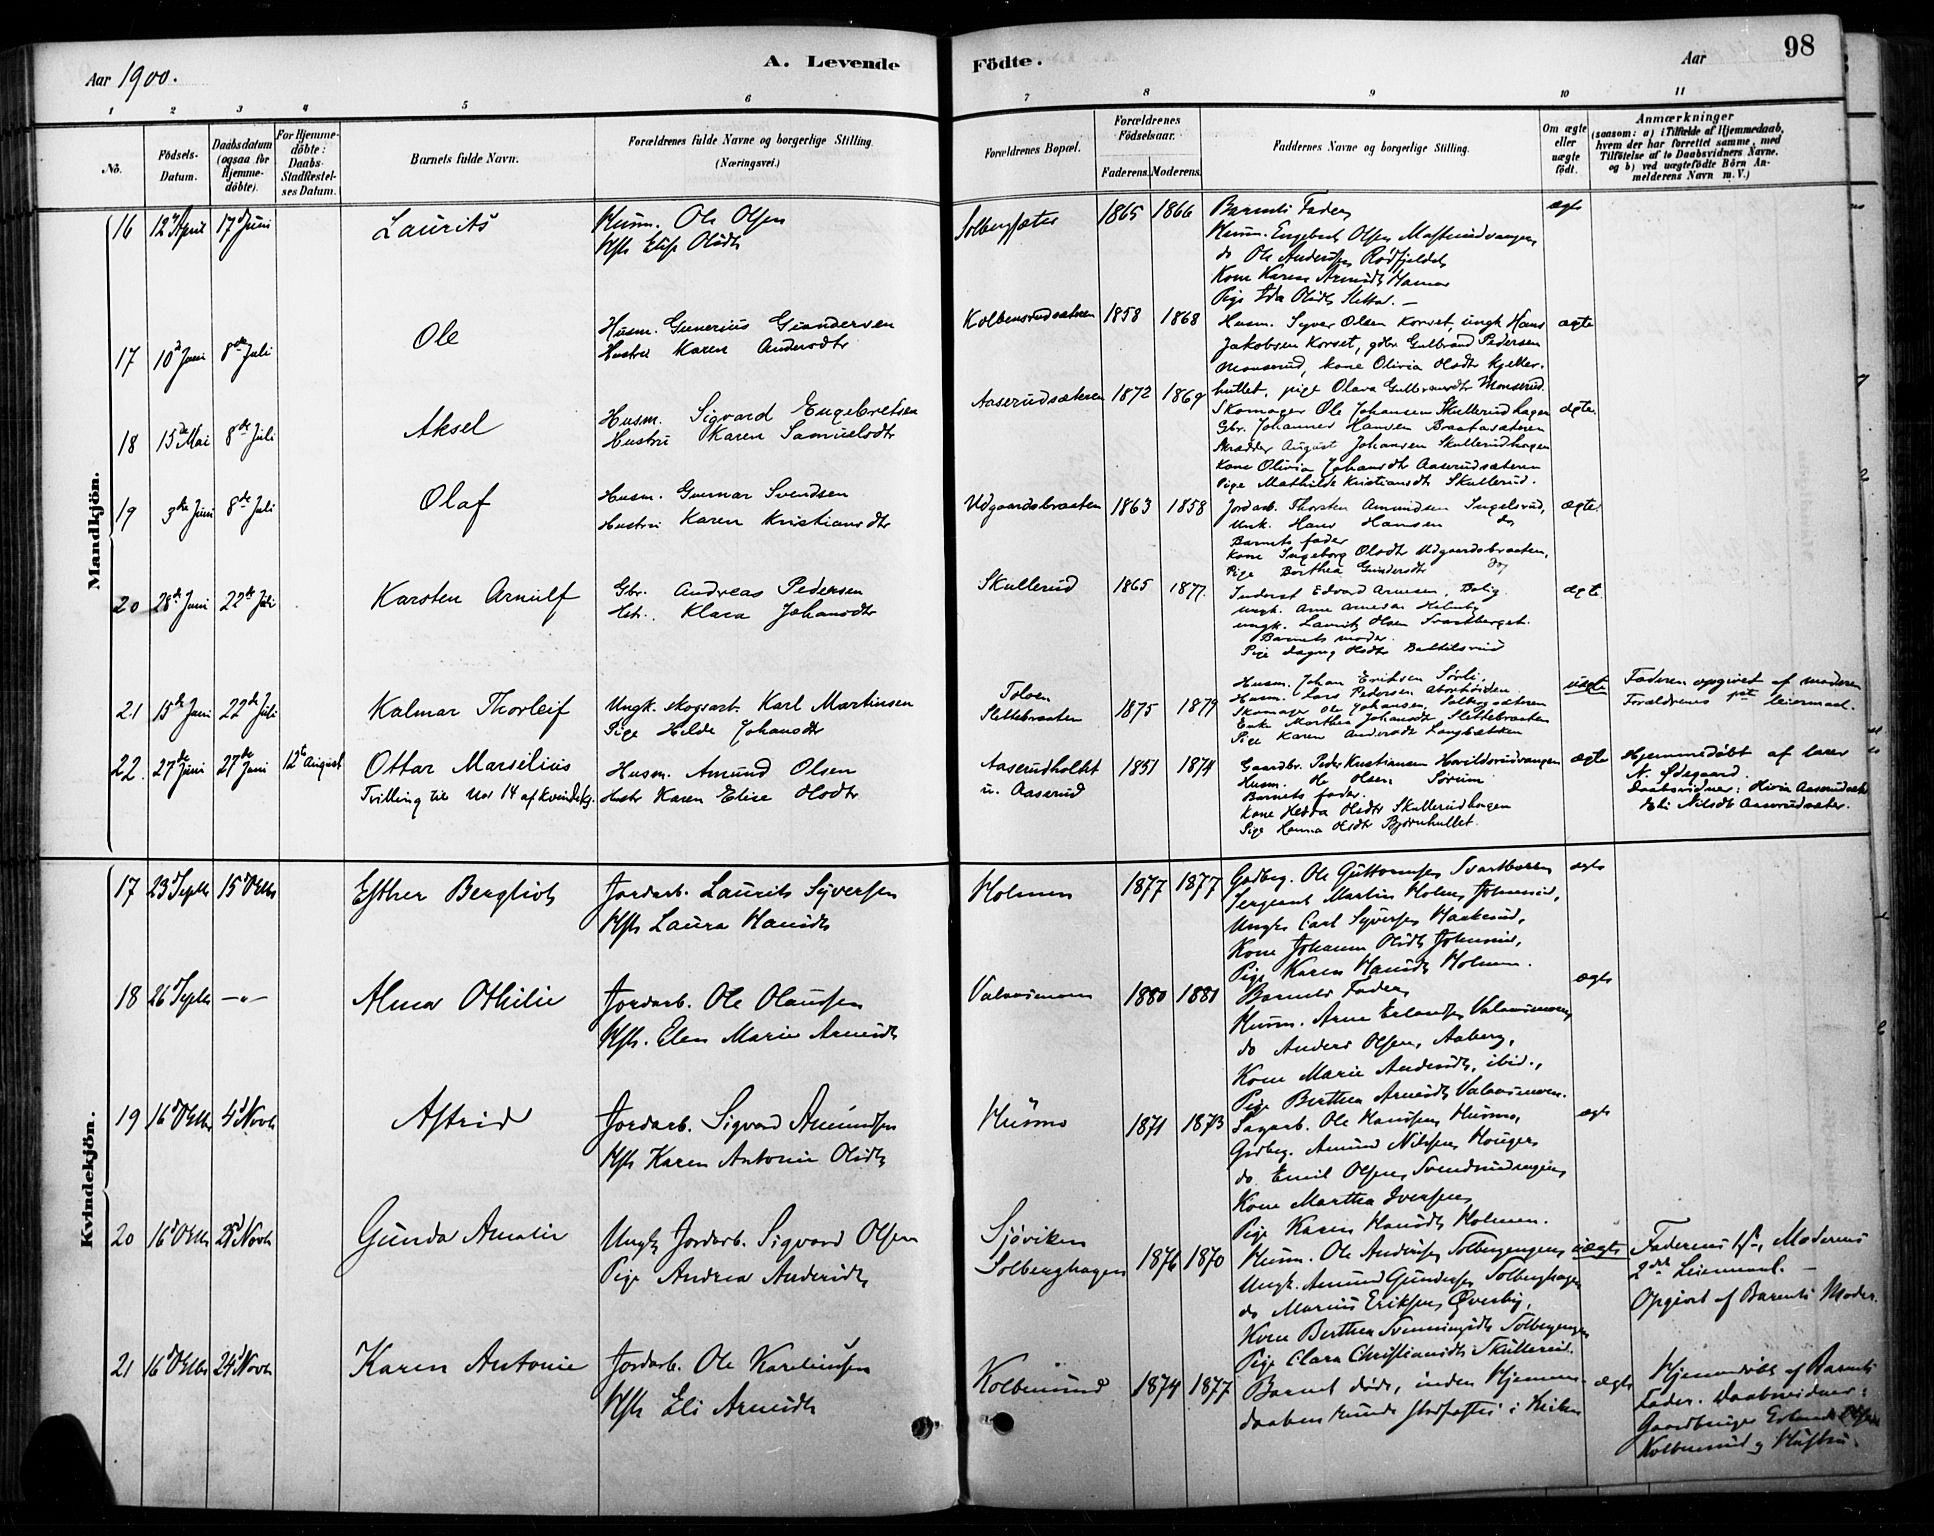 Aar 1900.
A. Levende Fødte.
Aar
98
1 2 3 4 5 6 7 8 9 10 11
No.
Fødsels-Datum.
Daabsdatum (ogsaa for Hjemmedøbte).
For Hjemmedøbte: Daabs-Stadfæstelses Datum.
Barnets fulde Navn.
Forældrenes fulde Navne og borgerlige Stilling. (Næringsvei.)
Forældrenes Bopæl.
Forældrenes Fødselsaar.
Faderens. Moderens.
Faddernes Navne og borgerlige Stilling.
Om ægte eller uægte født.
Anmærkninger
(saasom: a) i Tilfælde af Hjemmedaab, hvem der har forrettet samme, med Tilføielse af to Daabsvidners Navne. og b) ved uægtefødte Børn Anmelderens Navn m. V.)
Mandkjøn.
16 12 April 17 Juni Laurits
Husm. Ole Olsen
Hstr Elise Olsdtr
Solbergsæter 1865 1866
Barnets Fader
Husm. Engebret Olsen
do Ole Andersen Rødfjeldet
Kone Karen Arnesdtr Hamar
Pige Ida Olsdtr Sletta. —
ægte
17 10de Juni 8de Juli Ole
Husm. Gunerius Gundersen
Hustru Karen Andersdtr
Kolbensrudsætren 1858 1868
Husm. Syver Olsen Korset, ungk Hans
Jakobsen Korset, gdbr Gulbrand Pedersen
Monserud, kone Olivia Olsdtr Kjeller-
hullet, pige Olava Gulbrandsdtr Monserud.
ægte
18 15de Mai 8de Juli Aksel
Husm. Sigvard Engebretsen
Hustru Karen Samuelsdtr
Aaserudsæteren 1872 1869
Skomager Ole Johansen Skullerudhagen
Gbr. Johannes Hansen Braatasæteren
Skrædder August Johansen Skullerudhagen
Kone Olivia Johansdtr Aaserudsæteren
Pige Mathilde Kristiansdtr Skullerud.
ægte
19 3die Juni 8de Juli Olaf
Husm. Gunnar Svendsen
Hustru Karen Kristiansdtr
Udgaardsbraaten 1863 1858
Jordarb. Thorsten Amundsen Ingelsrud,
Ungk. Hans Hansen do
Barnets fader
Kone Ingeborg Olsdtr Udgaardsbraaten,
Pige Berthea Gundersdtr do
ægte
20 28de Juni 22de Juli Karsten Arnulf
Gbr. Andreas Pedersen
Hstr. Klara Johansdtr
Skullerud 1865 1877.
Inderst Edvard Arnesen, Bolig.
ungk. Arne Arnesen Helmby
ungk. Laurits Olsen Svartberget.
Barnets moder.
Pige Dagny Olsdtr Bertelsrud
ægte.
21 15de Juni 22de Juli Kalmar Thorleif
Ungk. skogsarb. Karl Martinsen
Pige Hilda Johansdtr
Tolven
Slettebraaten 1875 1879
Husm. Johan Eriksen Sørli,
Husm. Lars Pedersen
Skomager Ole Johansen, Solbergsæteren
Enke Marthea Johansdtr Slettebraaten
Pige Karen Andersdtr Langbakken
uægte
Faderen opgivet af moderen
Forældrenes 1ste leiermaal.
22. 27de Juni 27de Juni 12te August Ottar Marselius
Tvilling til Nor 14 af kvindekj.
Husm. Amund Olsen
Hustr Karen Elise Olsdtr
Aaserudholtet
u. Aaserud 1851 1874
Gaardbr. Peder Kristiansen Hovildsrudvangen
Husm. Ole Olsen Sørum
Barnets fader.
Kone Hedda Olsdtr Skullerudhagen
Pige Hanna Olsdtr Bjørnhullet.
ægte
Hjemmedøbt af lærer
N. Ødegaard.
Daabsvidner: Olivia Aaserudsæter
Eli Nilsdt Aaserudsæter.
Kvindekjøn.
17 23 Septbr 15 Oktbr Esther Bergliot
Jordarb. Laurits Syversen
Hstr Laura Hansdtr
Holmen 1877 1877
Gdbrg. Ole Guttormsen Svartberen
Sergeant Martin Holm, Johnsrud,
Ungk. Carl Syversen Haakerud,
Kone Johanne Olsdtr Johnsrud,
Pige Karen Hansdtr Holmen.
ægte
18 26 Septbr —"— Alma Othilie
Jordarb. Ole Olaussen
Hstr. Elen Marie Arnesdtr
Valaasmoen 1880 1881
Barnets Fader
Husm. Arne Erlandsen Valaasmoen
do Anders Olsen, Aaberg,
Kone Marie Andersdtr, ibid.,
Pige Berthea Arnesdtr Valaasmoen.
ægte
19 16 Oktbr 4 Novbr Astrid
Jordarb. Sigvard Amundsen
Hstr Karen Antonie Olsdtr
Husmo 1871 1873
Sagarb. Ole Hansen Husmo,
Gdbrg. Amund Nilsen Hougen
do Emil Olsen, Svendsrudvangen
Kone Marthea Iversen
Pige Karen Hansdtr Holmen.
ægte
20 16 Oktbr 25 Novbr Gunda Amalie
Ungk Jordarb. Sigvard Olsen
Pige Andrea Andersdtr
Sjøviken
Solberghagen 1876 1870
Husm. Ole Andersen Solbergengen
Ungk. Amund Gundersen Solberghagen
do Marius Eriksen Øverby,
Kone Berthea Svenningsdtr Solbergengen
Pige Clara Christiansdtr Skullerud.
uægte
Faderens 1ste, Moderens
2det Leiermaal. —
Opgivet af Barnets Moder.
21 16 Oktbr 24 Novbr Karen Antonie
Jordarb. Ole Karelinsen
Hstr Eli Arnesdtr
Kolbensrud 1874 1877
Barnet døde, inden Hjemme-
daaben kunde stadfæstes i Kirken
ægte
Hjemmedøbt af Barnets
Fader. Daabsvidner:
Gaardbruger Erland Olsen
Kolbensrud og Hustru.